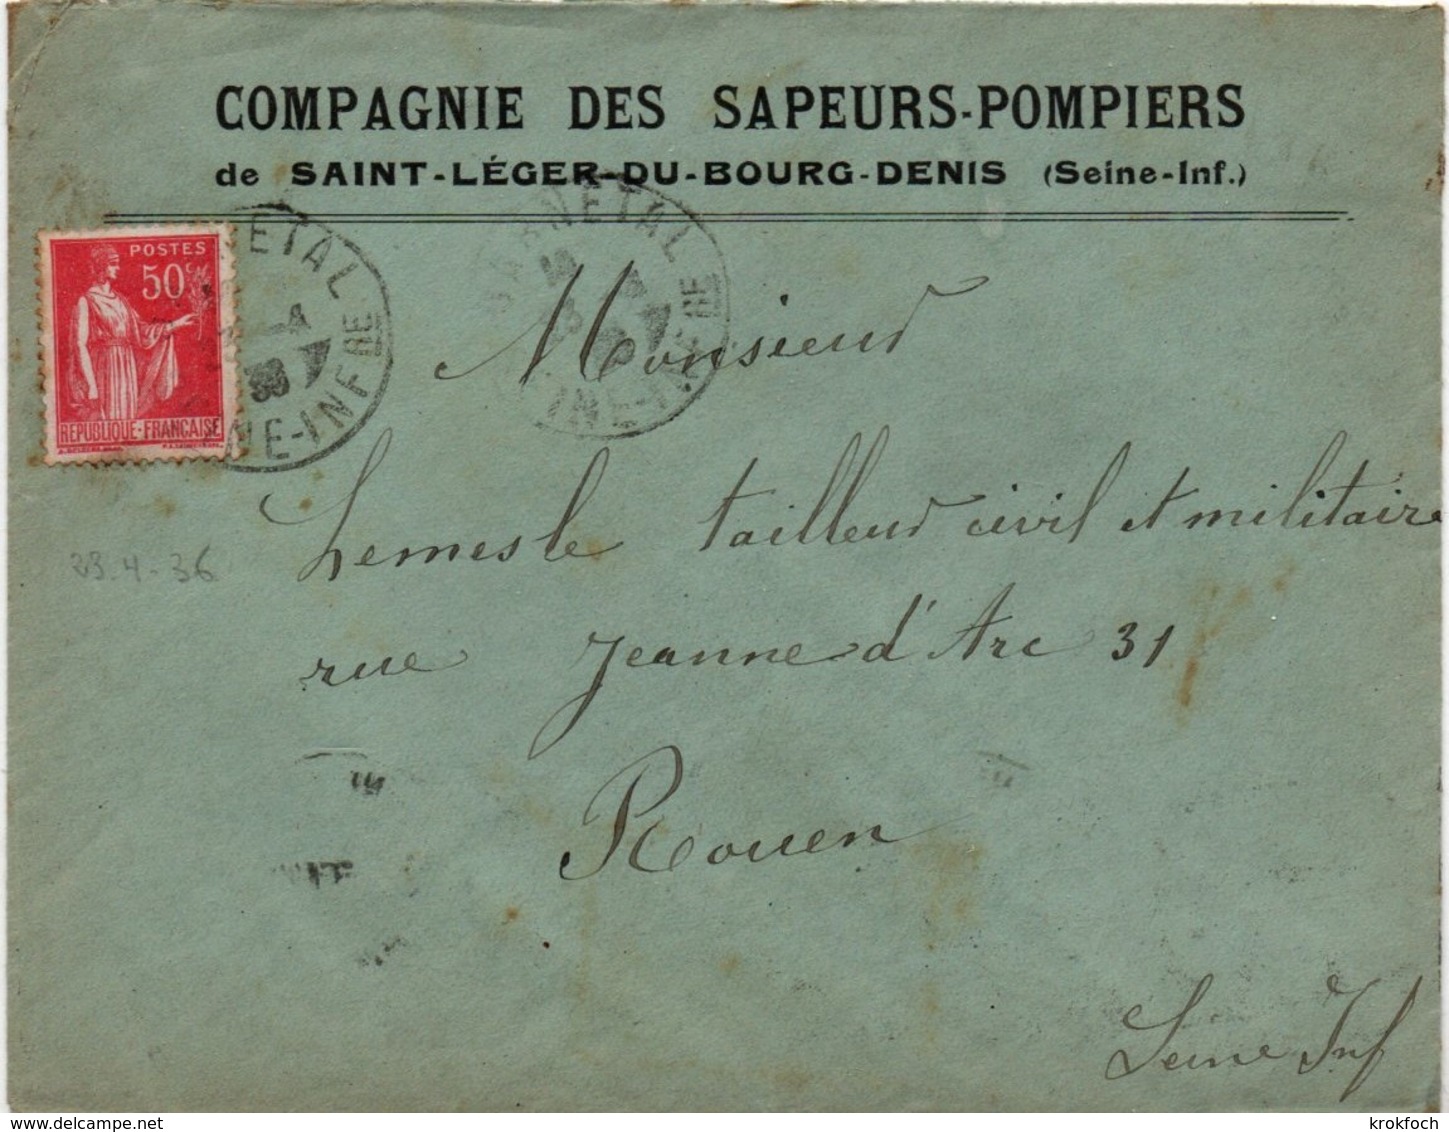 COMPAGNIE DES SAPEURS-POMPIERS
de SAINT-LÉGER-DU-BOURG-DENIS (Seine-Inf.)
POSTES
50c
REPUBLIQUE·FRANÇAISE
ETAL
-4
36
NE-INFRE
DARNETAL
INE-INFRE
Monsieur
Lemesle tailleur civil et militaire
23.4-36
rue Jeanne d'Arc 31
Rouen
Seine Inf
www.delcampe.net
krokfoch